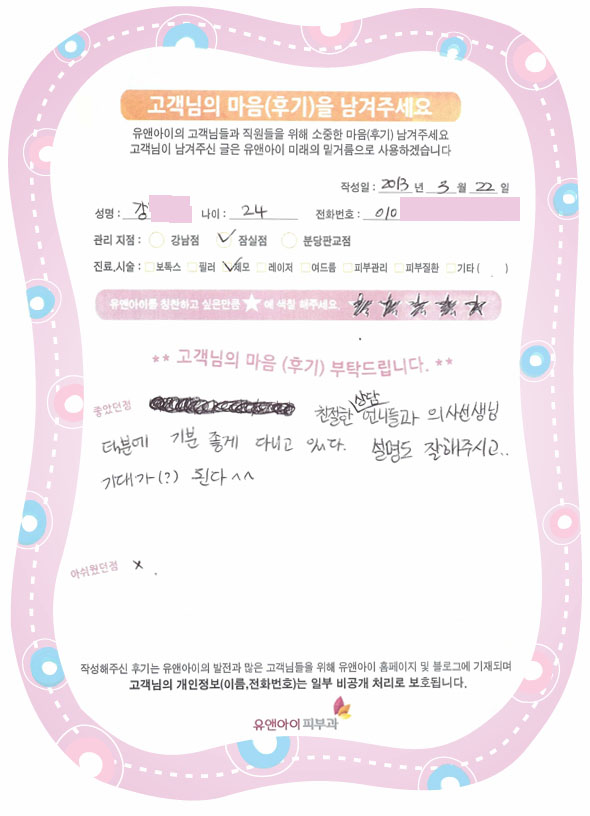 고객님의 마음(후기)을 남겨주세요
유앤아이의 고객님들과 직원들을 위해 소중한 마음(후기) 남겨주세요
고객님이 남겨주신 글은 유앤아이 미래의 밑거름으로 사용하겠습니다
작성일 : 2013 년 3 월 22 일
성명 : 강 나이 : 24 전화번호 : 010
관리 지점 : 강남점 잠실점 분당판교점
진료,시술 : 보톡스 필러 제모 레이저 여드름 피부관리 피부질환 기타 ( )
유앤아이를 칭찬하고 싶은만큼 ★ 에 색칠 해주세요. ★ ★ ★ ★ ★
** 고객님의 마음 (후기) 부탁드립니다. **
좋았던점 친절한 상담 언니들과 의사선생님
때문에 기분 좋게 다니고 있다. 설명도 잘해주시고..
기대가(?) 된다 ^^
아쉬웠던점 x .
작성해주신 후기는 유앤아이의 발전과 많은 고객님들을 위해 유앤아이 홈페이지 및 블로그에 기재되며
고객님의 개인정보(이름,전화번호)는 일부 비공개 처리로 보호됩니다.
유앤아이피부과